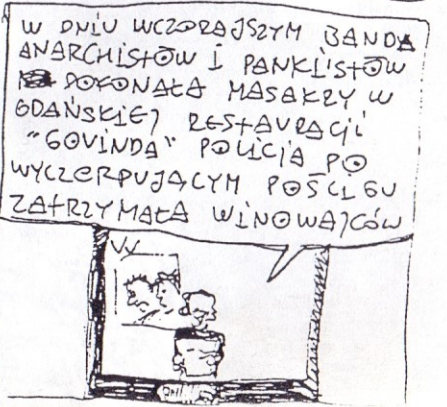 W DNIU WCZORAJSZYM BANDA
ANARCHISTÓW I PANKIISTÓW
DOKONAŁA MASAKRY W
GDAŃSKIEJ RESTAURACJI
"GOVINDA" POLICJA PO
WYCZERPUJĄCYM POŚCIGU
ZATRZYMAŁA WINOWAJCÓW